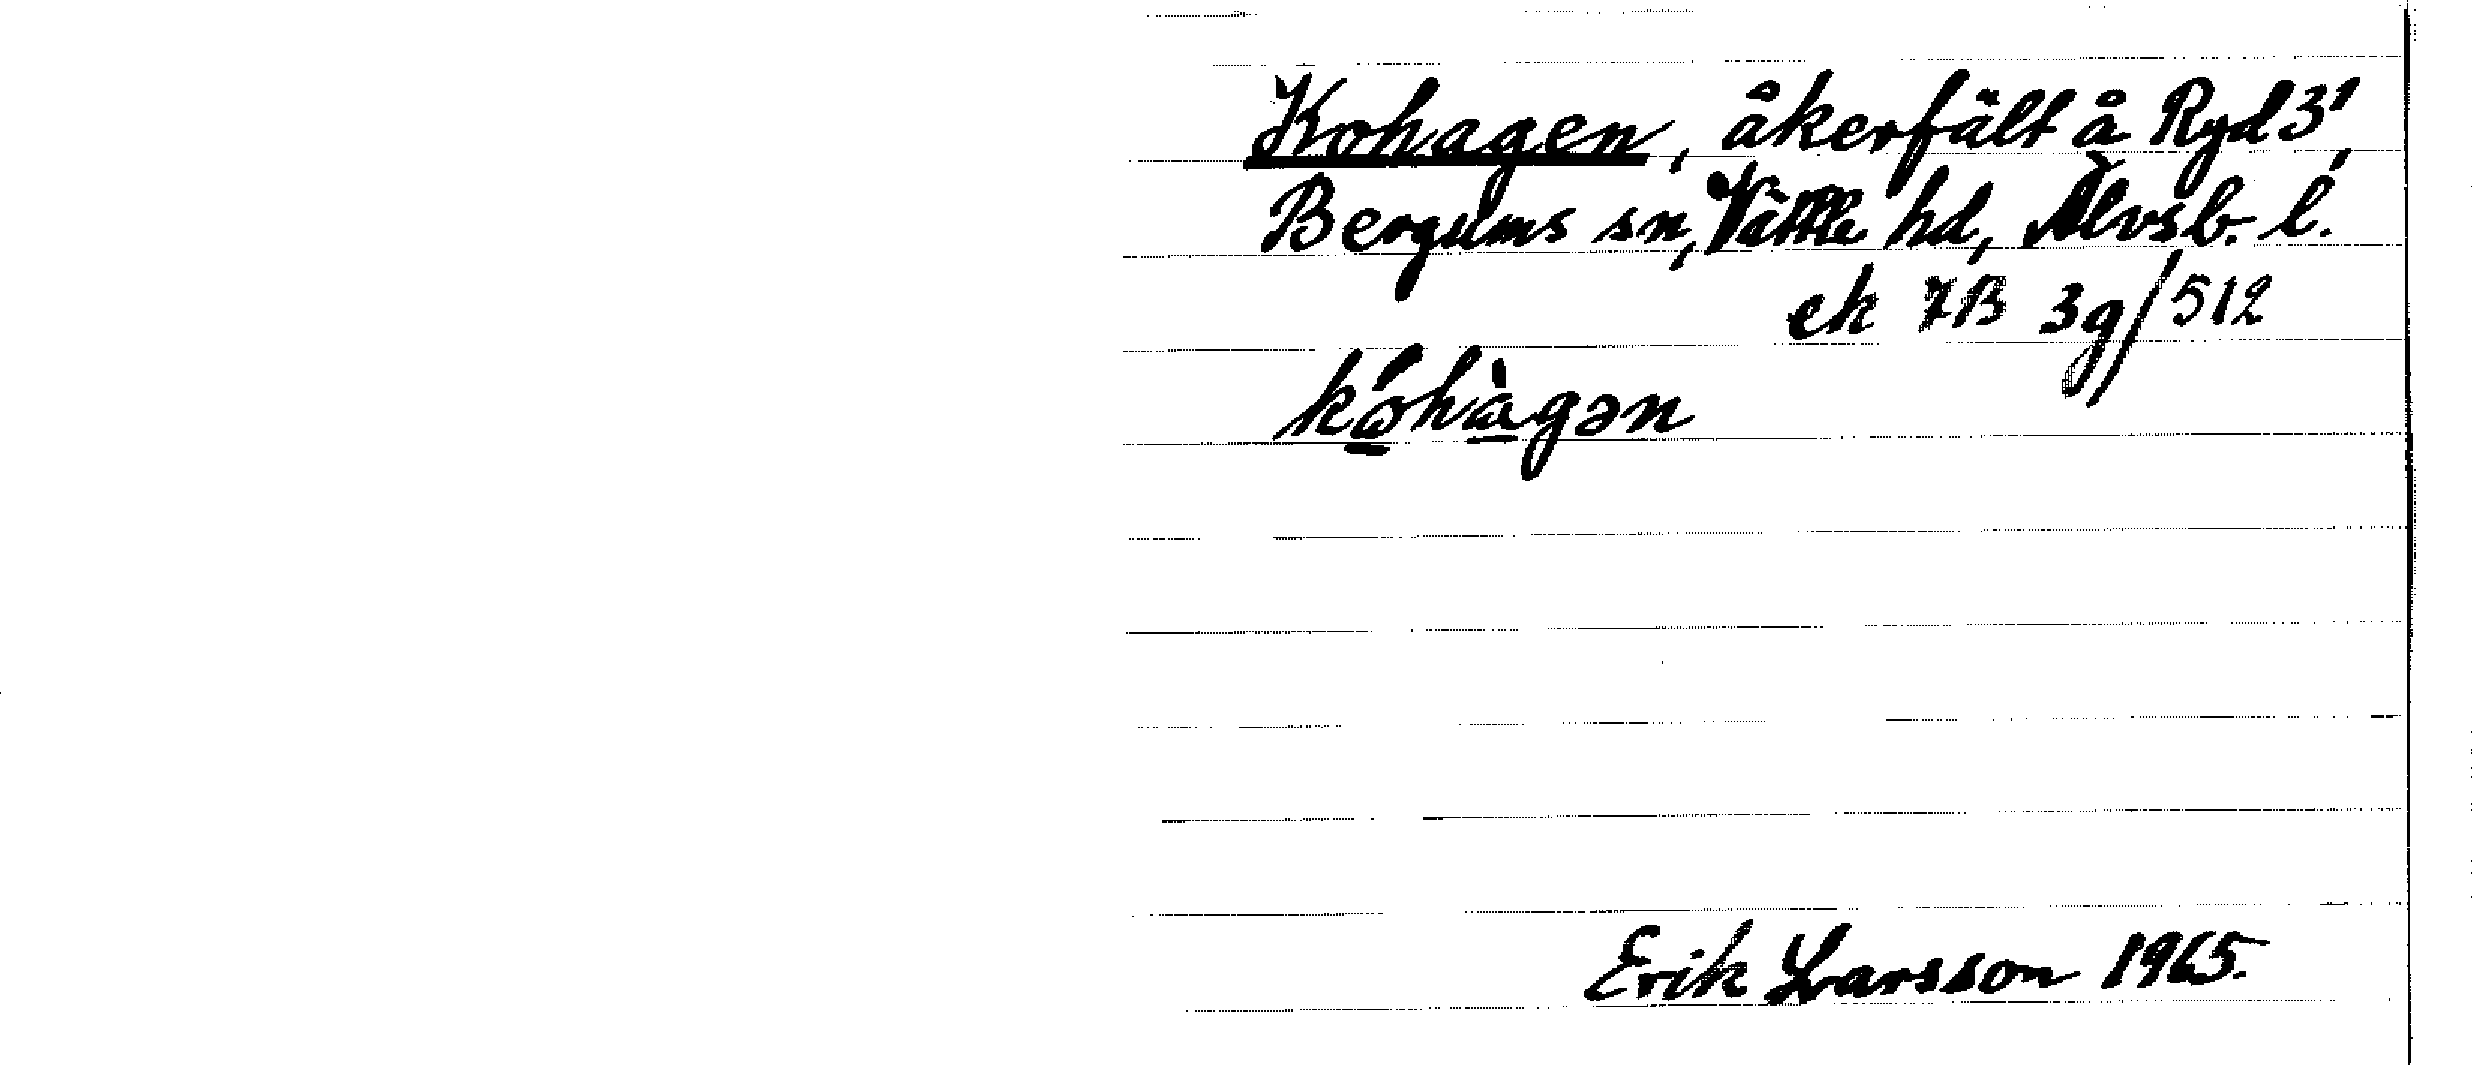 Kohagen, åkerfält å Ryd 3¹,
Bergums sn, Vättle hd, Älvsb. l.
ek 7B 3g/512
kó̲hà̲gən
Erik Larsson 1965.